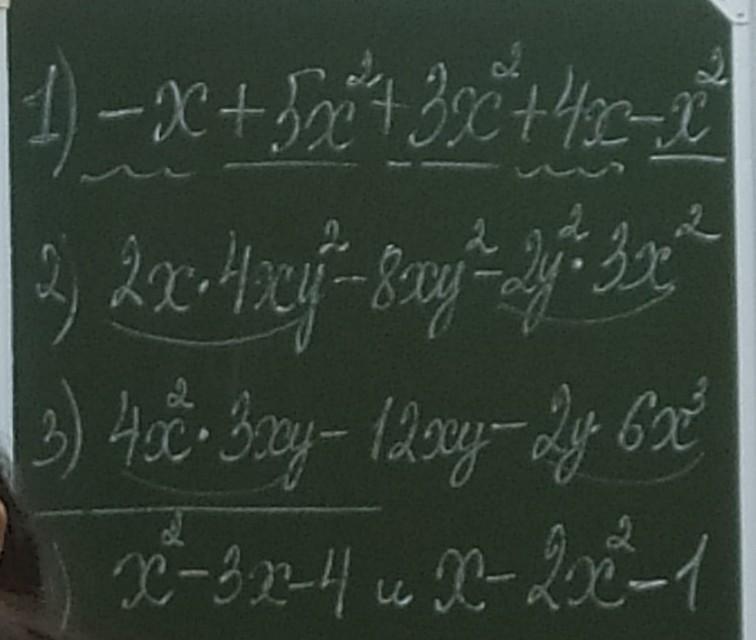 1) -x + 5x² + 3x² + 4x - x²
2) 2x · 4xy² - 8xy² - 2y² · 3x²
3) 4x² · 3xy - 12xy - 2y · 6x³
) x² - 3x - 4 и x - 2x² - 1